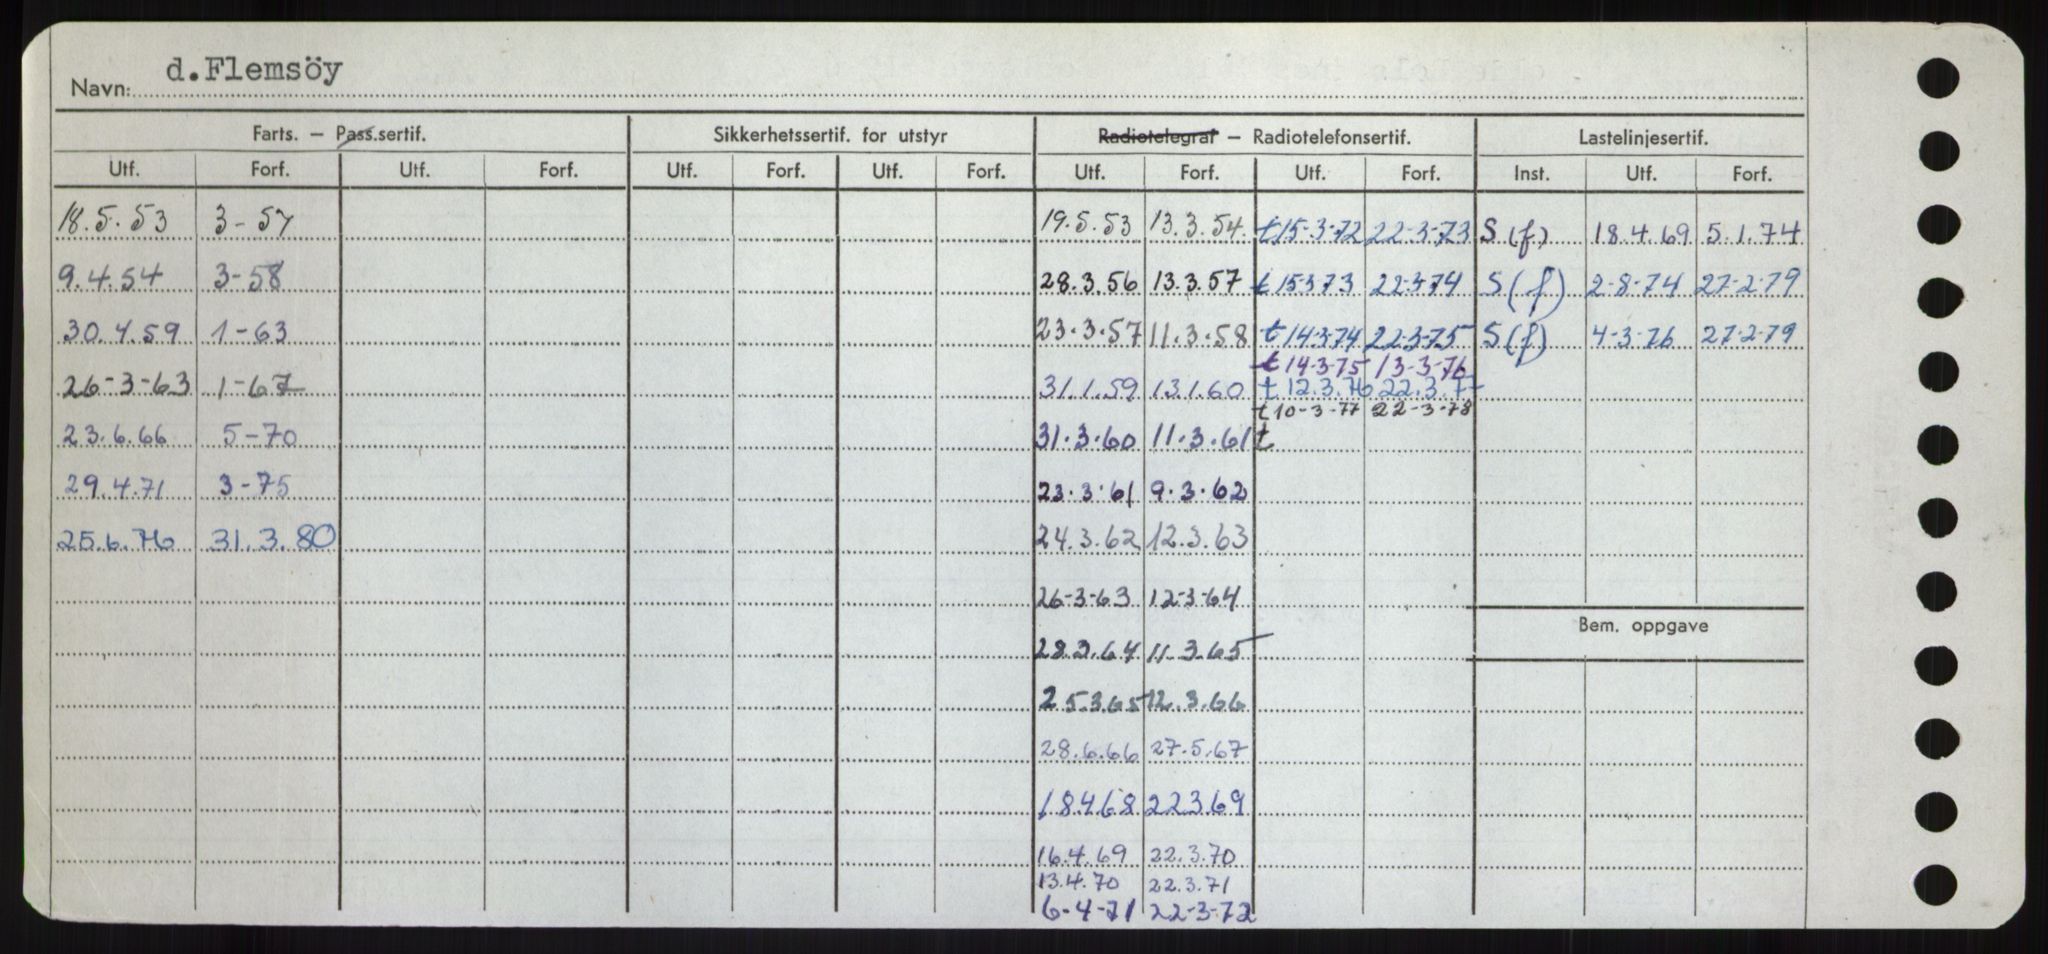 Navn: d.Flemsöy
Farts. — Pass.sertif. Sikkerhetssertif. for utstyr Radiotelegraf — Radiotelefonsertif. Lastelinjesertif.
Utf. Forf. Utf. Forf. Utf. Forf. Utf. Forf. Utf. Forf. Utf. Forf. Inst. Utf. Forf.
18.5.53 3-57 19.5.53 13.3.54 t 15-3-72 22-3-73 S (f) 18.4.69 5.1.74
9.4.54 3-58 28.3.56 13.3.57 t 15-3-73 22-3-74 S (f) 2-8-74 27-2-79
30.4.59 1-63 23.3.57 11.3.58 t 14-3-74 22-3-75 S (f) 4-3-76 27-2-79
t 14-3-75 13-3-76
26-3-63 1-67 31.1.59 13.1.60 t 12.3.76 22.3.77
t 10-3-77 22-3-78
23.6.66 5-70 31.3.60 11.3.61 t
29.4.71 3-75 23.3.61 9.3.62
25.6.76 31.3.80 24.3.62 12.3.63
26-3-63 12-3-64
Bem. oppgave
28.3.64 11.3.65
25.3.65 12.3.66
28.6.66 27.5.67
18.4.68 22.3.69
16.4.69 22.3.70
13.4.70 22.3.71
6-4-71 22-3-72